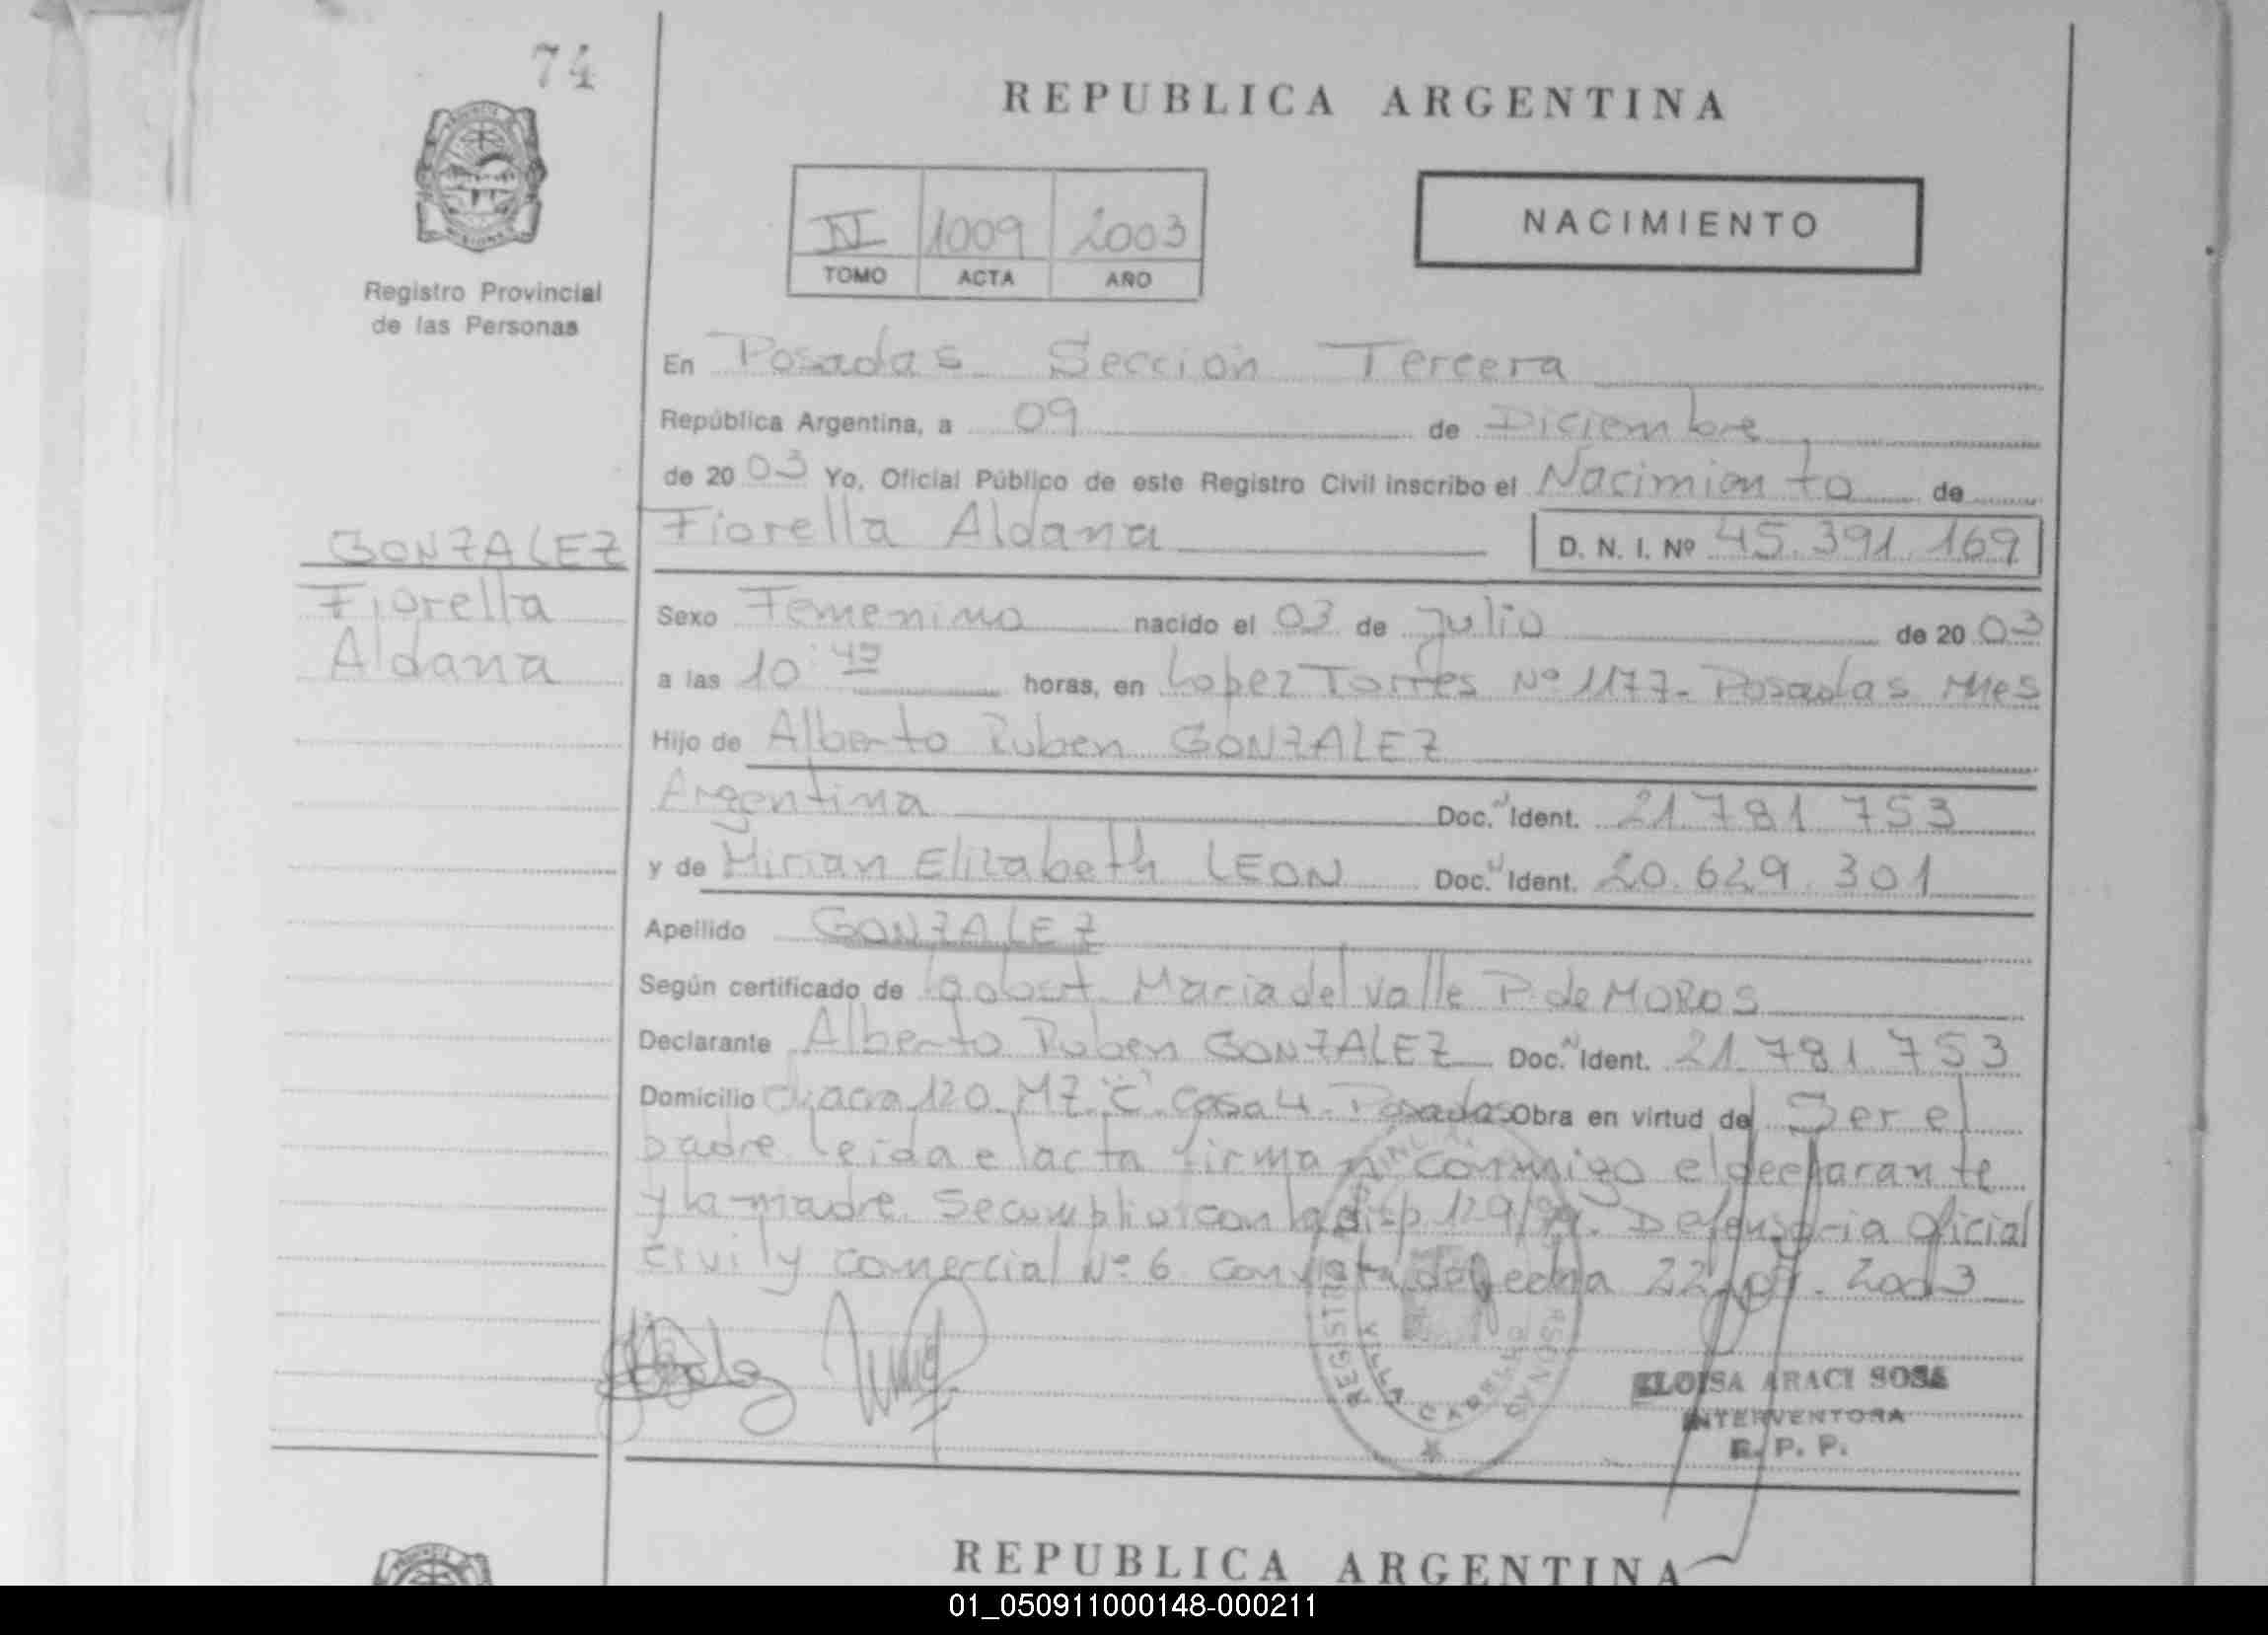 74
REPUBLICA ARGENTINA
1009 2003
TOMO ACTA AÑO
NACIMIENTO
Registro Provincial
de las Personas
En Posadas Sección Tercera
República Argentina, a 09 de Diciembre
de 20 03 Yo, Oficial Público de este Registro Civil inscribo el Nacimiento de
GONZALEZ
Fiorella
Aldana
Fiorella Aldana D. N. I. Nº 45.391.169
Sexo Femenino nacido el 03 de Julio de 20 03
a las 10:49 horas, en Lopez Torres Nº 1177- Posadas Mnes
Hijo de Alberto Ruben GONZALEZ
Argentina Doc. N Ident. 21.781.753
y de Mirian Elizabeth LEON Doc. N Ident. 20.629.301
Apellido GONZALEZ
Según certificado de Maria del Valle P. de MOROS
Declarante Alberto Ruben GONZALEZ Doc. N Ident. 21.781.753
Domicilio Chacra 120 MZ "C" Casa 4 - Posadas Obra en virtud de Ser el
padre leida el acta firman conmigo el declarante
y la madre. Se cumplio con la disp. Defensoria Oficial
Civil y comercial Nº 6 con vista de fecha 2003
REGISTRO VILLA CABELLO
ELOISA ARACI SOSA
INTERVENTORA
R. P. P.
REPUBLICA ARGENTINA
01_050911000148-000211